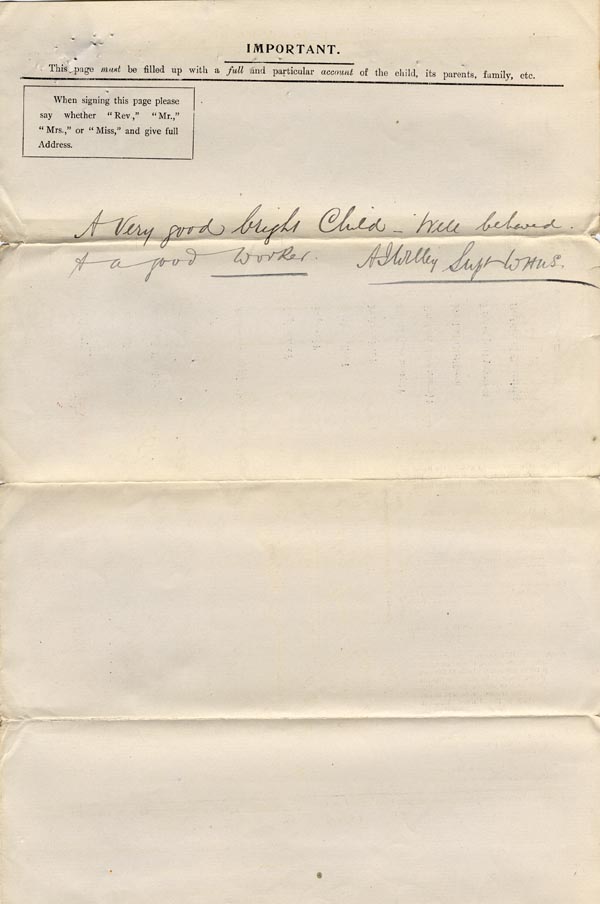 IMPORTANT.
This page must be filled up with a full and particular account of the child, its parents, family, etc.
When signing this page please
say whether "Rev," "Mr.,"
"Mrs.," or "Miss," and give full
Address.
A Very good bright Child – Well behaved.
& a good Worker. Supt